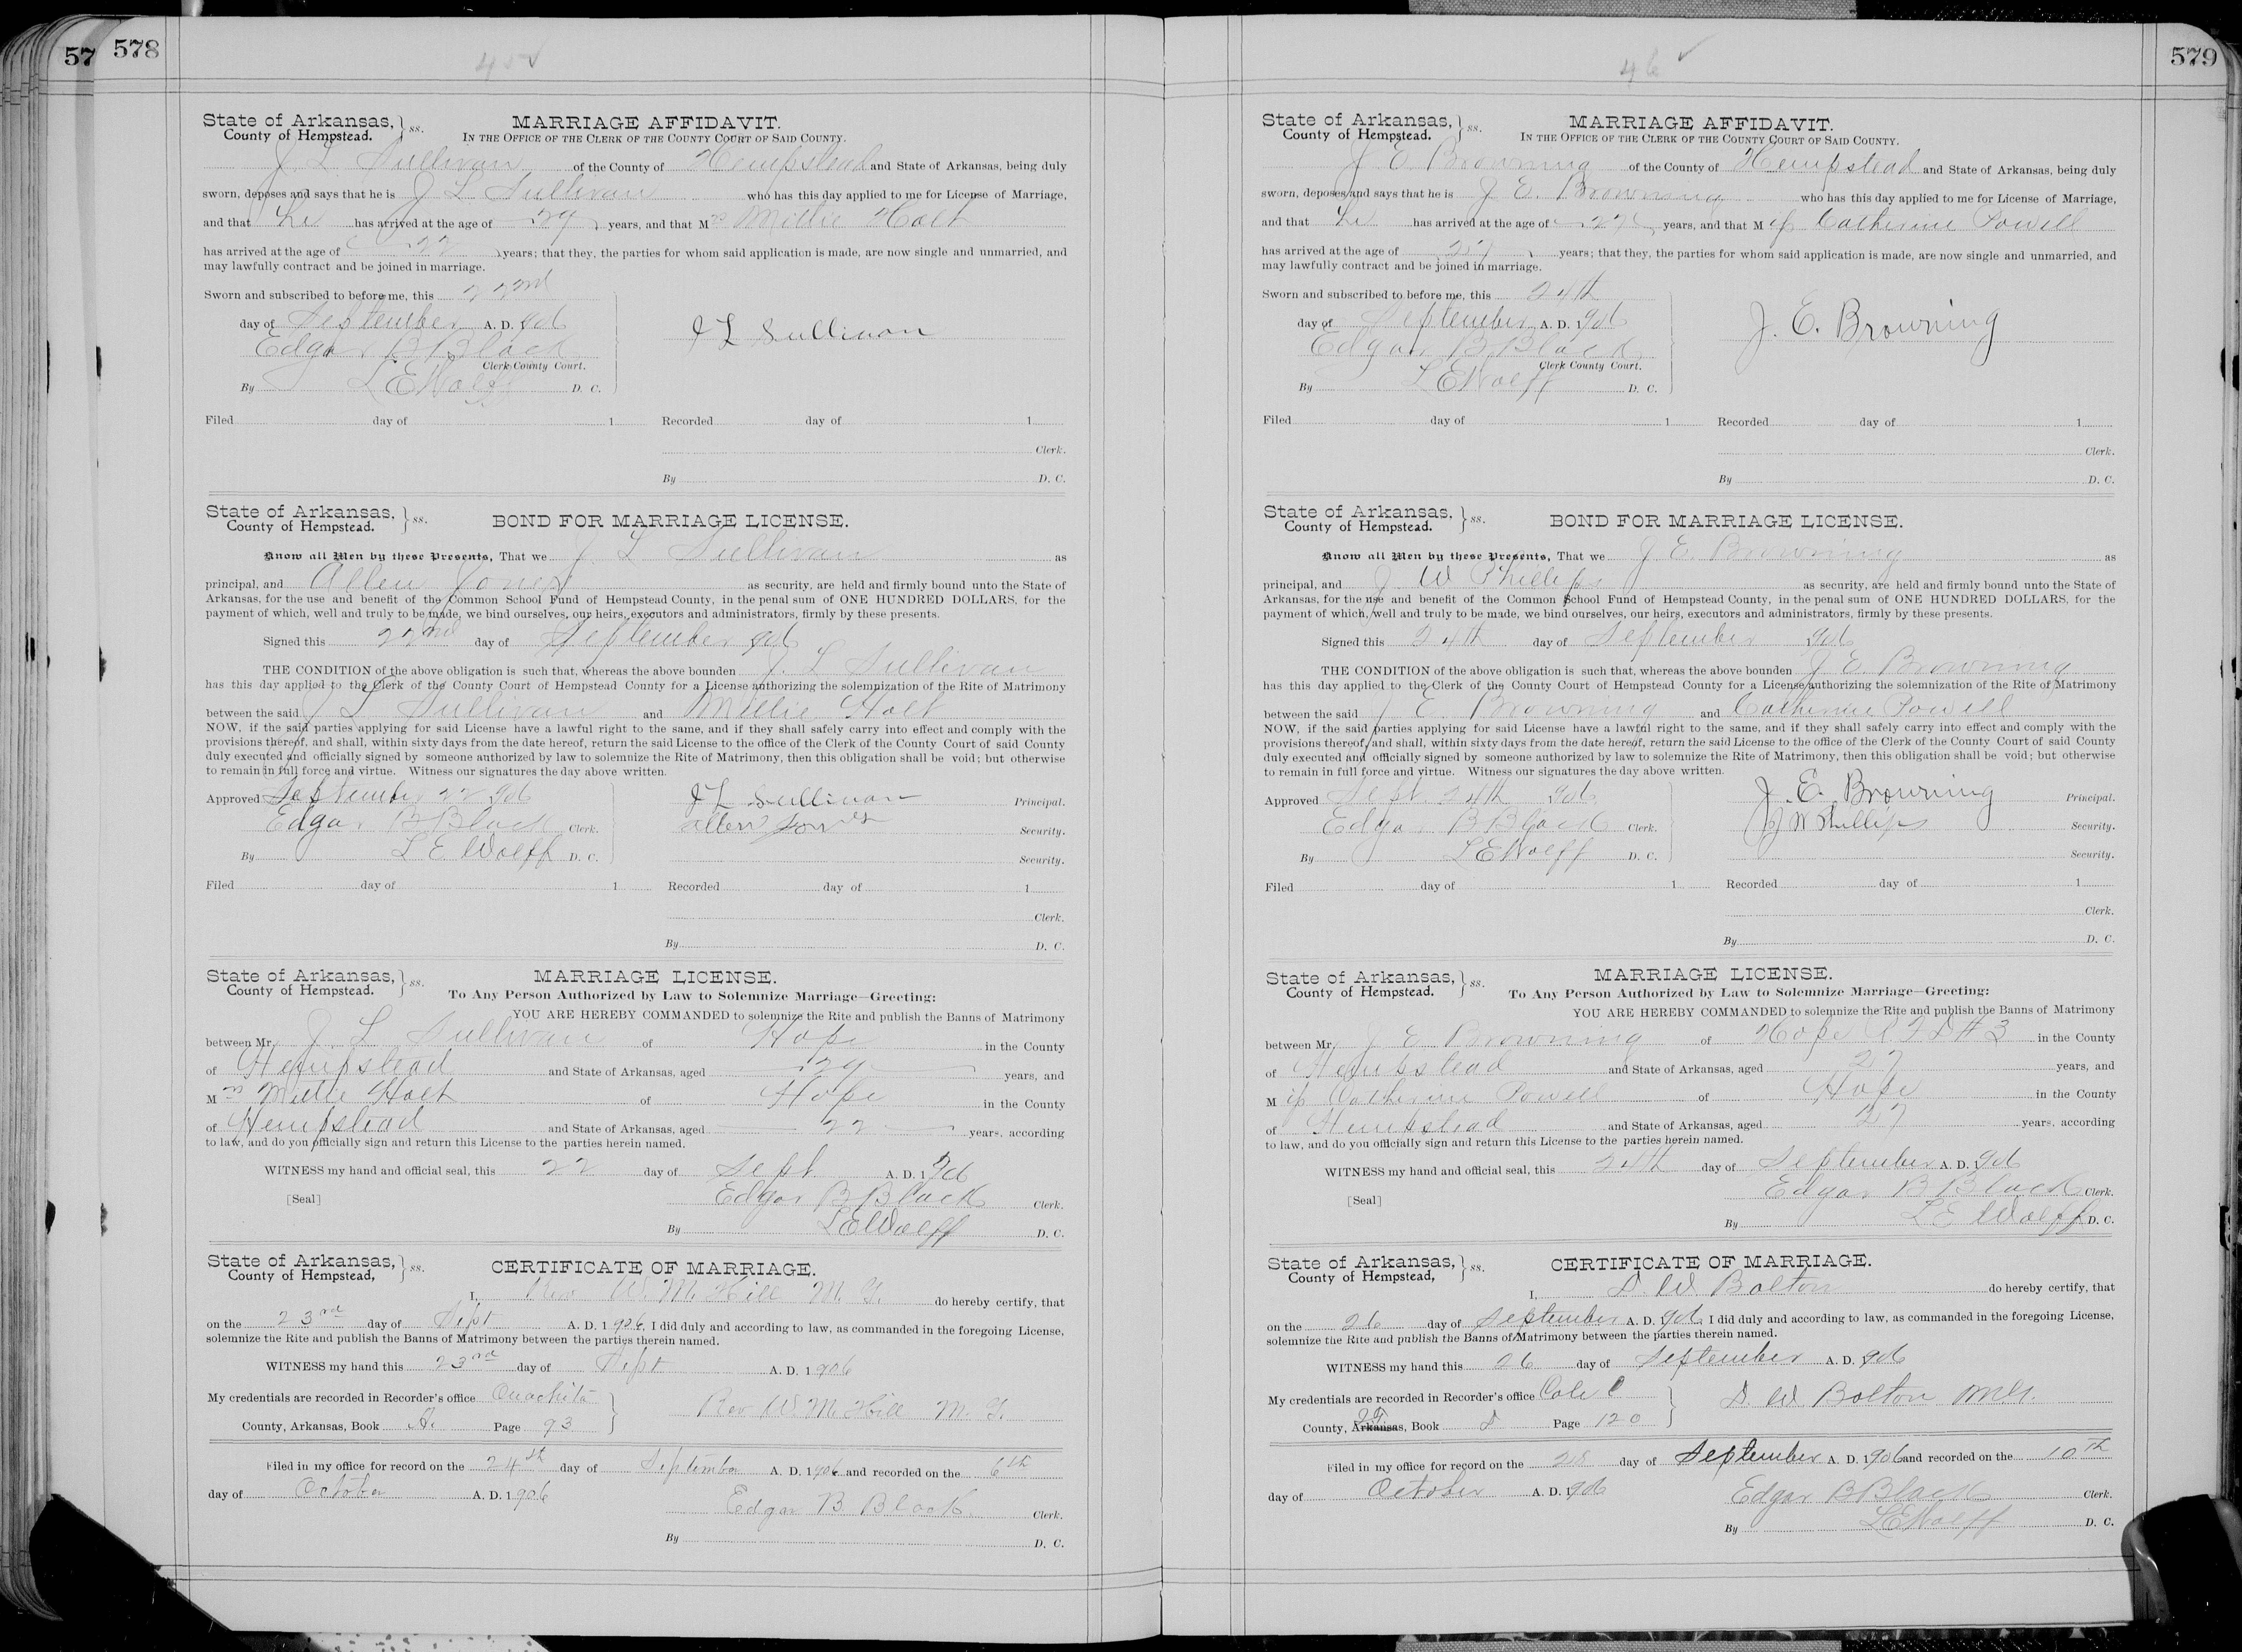 57
578
45 ✓
State of Arkansas, } ss.
County of Hempstead.
MARRIAGE AFFIDAVIT.
IN THE OFFICE OF THE CLERK OF THE COUNTY COURT OF SAID COUNTY.
J L Sullivan of the County of Hempstead and State of Arkansas, being duly
sworn, deposes and says that he is J L Sullivan who has this day applied to me for License of Marriage,
and that he has arrived at the age of 29 years, and that Mrs Millie Holt
has arrived at the age of 22 years; that they, the parties for whom said application is made, are now single and unmarried, and
may lawfully contract and be joined in marriage.
Sworn and subscribed to before me, this 22nd
day of September A. D. 1906
Edgar B Black
Clerk County Court.
By L E Wolff D. C.
J L Sullivan
Filed day of 1 Recorded day of 1
Clerk.
By D. C.
State of Arkansas, } ss.
County of Hempstead.
BOND FOR MARRIAGE LICENSE.
Know all Men by these Presents, That we J. L Sullivan as
principal, and Allen Jones as security, are held and firmly bound unto the State of
Arkansas, for the use and benefit of the Common School Fund of Hempstead County, in the penal sum of ONE HUNDRED DOLLARS, for the
payment of which, well and truly to be made, we bind ourselves, our heirs, executors and administrators, firmly by these presents.
Signed this 22nd day of September 1906
THE CONDITION of the above obligation is such that, whereas the above bounden J. L Sullivan
has this day applied to the Clerk of the County Court of Hempstead County for a License authorizing the solemnization of the Rite of Matrimony
between the said J L Sullivan and Millie Holt
NOW, if the said parties applying for said License have a lawful right to the same, and if they shall safely carry into effect and comply with the
provisions thereof, and shall, within sixty days from the date hereof, return the said License to the office of the Clerk of the County Court of said County
duly executed and officially signed by someone authorized by law to solemnize the Rite of Matrimony, then this obligation shall be void; but otherwise
to remain in full force and virtue. Witness our signatures the day above written.
Approved September 22 1906
Edgar B Black Clerk.
By L E Wolff D. C.
J L Sullivan Principal.
Allen Jones Security.
Security.
Filed day of 1 Recorded day of 1
Clerk.
By D. C.
State of Arkansas, } ss.
County of Hempstead.
MARRIAGE LICENSE.
To Any Person Authorized by Law to Solemnize Marriage—Greeting:
YOU ARE HEREBY COMMANDED to solemnize the Rite and publish the Banns of Matrimony
between Mr. J. L Sullivan of Hope in the County
of Hempstead and State of Arkansas, aged 29 years, and
Mrs Millie Holt of Hope in the County
of Hempstead and State of Arkansas, aged 22 years, according
to law, and do you officially sign and return this License to the parties herein named.
WITNESS my hand and official seal, this 22 day of Sept A. D. 1906
[Seal]
Edgar B Black Clerk.
By L E Wolff D. C.
State of Arkansas, } ss.
County of Hempstead,
CERTIFICATE OF MARRIAGE.
I, Rev W. M. Hill M. G. do hereby certify, that
on the 23rd day of Sept A. D. 1906, I did duly and according to law, as commanded in the foregoing License,
solemnize the Rite and publish the Banns of Matrimony between the parties therein named.
WITNESS my hand this 23rd day of Sept A. D. 1906
My credentials are recorded in Recorder's office Ouachita
County, Arkansas, Book A. Page 93
Rev W. M. Hill M. G.
Filed in my office for record on the 24th day of September A. D. 1906 and recorded on the 6th
day of October A. D. 1906
Edgar B Black Clerk.
By D. C.
579
46 ✓
State of Arkansas, } ss.
County of Hempstead.
MARRIAGE AFFIDAVIT.
IN THE OFFICE OF THE CLERK OF THE COUNTY COURT OF SAID COUNTY.
J E Browning of the County of Hempstead and State of Arkansas, being duly
sworn, deposes and says that he is J E. Browning who has this day applied to me for License of Marriage,
and that he has arrived at the age of 27 years, and that Miss Catherine Powell
has arrived at the age of 27 years; that they, the parties for whom said application is made, are now single and unmarried, and
may lawfully contract and be joined in marriage.
Sworn and subscribed to before me, this 24th
day of September A. D. 1906
Edgar B Black
Clerk County Court.
By L E Wolff D. C.
J. E. Browning
Filed day of 1 Recorded day of 1
Clerk.
By D. C.
State of Arkansas, } ss.
County of Hempstead.
BOND FOR MARRIAGE LICENSE.
Know all Men by these Presents, That we J E. Browning as
principal, and J W Phillips as security, are held and firmly bound unto the State of
Arkansas, for the use and benefit of the Common School Fund of Hempstead County, in the penal sum of ONE HUNDRED DOLLARS, for the
payment of which, well and truly to be made, we bind ourselves, our heirs, executors and administrators, firmly by these presents.
Signed this 24th day of September 1906
THE CONDITION of the above obligation is such that, whereas the above bounden J E. Browning
has this day applied to the Clerk of the County Court of Hempstead County for a License authorizing the solemnization of the Rite of Matrimony
between the said J E. Browning and Catherine Powell
NOW, if the said parties applying for said License have a lawful right to the same, and if they shall safely carry into effect and comply with the
provisions thereof, and shall, within sixty days from the date hereof, return the said License to the office of the Clerk of the County Court of said County
duly executed and officially signed by someone authorized by law to solemnize the Rite of Matrimony, then this obligation shall be void; but otherwise
to remain in full force and virtue. Witness our signatures the day above written.
Approved Sept. 24th 1906
Edgar B Black Clerk.
By L E Wolff D. C.
J. E. Browning Principal.
J W Phillips Security.
Security.
Filed day of 1 Recorded day of 1
Clerk.
By D. C.
State of Arkansas, } ss.
County of Hempstead.
MARRIAGE LICENSE.
To Any Person Authorized by Law to Solemnize Marriage—Greeting:
YOU ARE HEREBY COMMANDED to solemnize the Rite and publish the Banns of Matrimony
between Mr. J E Browning of Hope R F D # 3 in the County
of Hempstead and State of Arkansas, aged 27 years, and
Miss Catherine Powell of Hope in the County
of Hempstead and State of Arkansas, aged 27 years, according
to law, and do you officially sign and return this License to the parties herein named.
WITNESS my hand and official seal, this 24th day of September A. D. 1906
[Seal]
Edgar B Black Clerk.
By L E Wolff D. C.
State of Arkansas, } ss.
County of Hempstead,
CERTIFICATE OF MARRIAGE.
I, D. W Bolton do hereby certify, that
on the 26 day of September A. D. 1906, I did duly and according to law, as commanded in the foregoing License,
solemnize the Rite and publish the Banns of Matrimony between the parties therein named.
WITNESS my hand this 26 day of September A. D. 1906
My credentials are recorded in Recorder's office Cole C
County, Arkansas, Book D Page 120
D. W Bolton M.G.
Filed in my office for record on the 28 day of September A. D. 1906 and recorded on the 10th
day of October A. D. 1906
Edgar B Black Clerk.
By L E Wolff D. C.